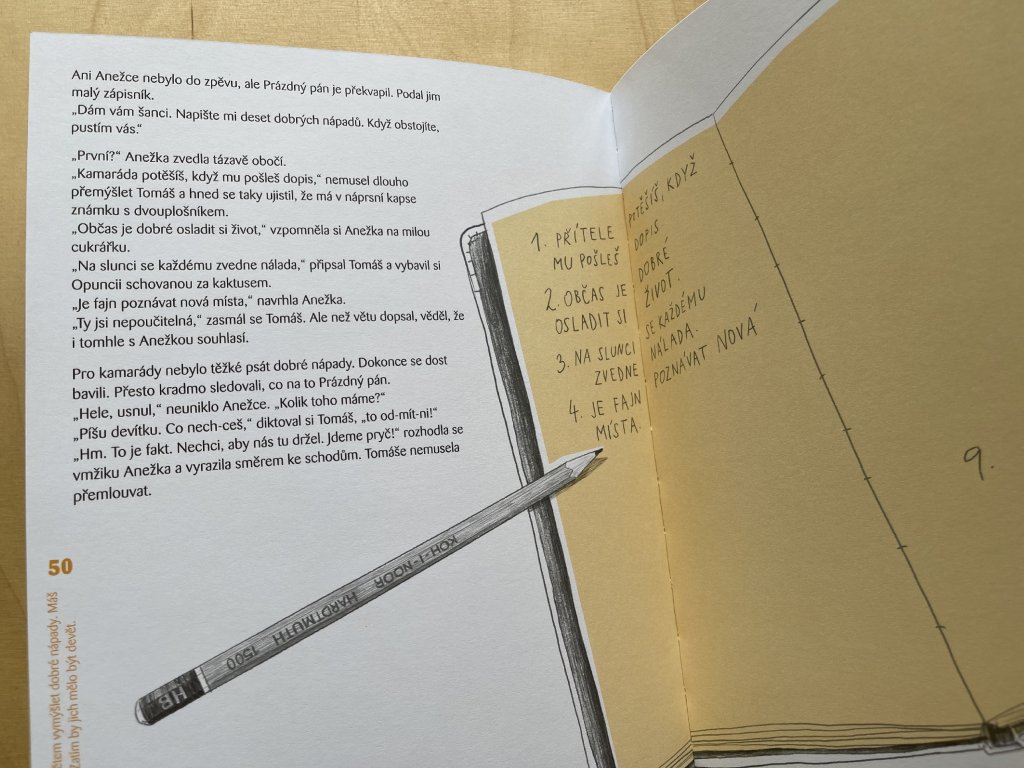 Ani Anežce nebylo do zpěvu, ale Prázdný pán je překvapil. Podal jim
malý zápisník.
„Dám vám šanci. Napište mi deset dobrých nápadů. Když obstojíte,
pustím vás.“
„První?“ Anežka zvedla tázavě obočí.
„Kamaráda potěšíš, když mu pošleš dopis,“ nemusel dlouho
přemýšlet Tomáš a hned se taky ujistil, že má v náprsní kapse
známku s dvouplošníkem.
„Občas je dobré osladit si život,“ vzpomněla si Anežka na milou
cukrářku.
„Na slunci se každému zvedne nálada,“ připsal Tomáš a vybavil si
Opuncii schovanou za kaktusem.
„Je fajn poznávat nová místa,“ navrhla Anežka.
„Ty jsi nepoučitelná,“ zasmál se Tomáš. Ale než větu dopsal, věděl, že
i tomhle s Anežkou souhlasí.
Pro kamarády nebylo těžké psát dobré nápady. Dokonce se dost
bavili. Přesto kradmo sledovali, co na to Prázdný pán.
„Hele, usnul,“ neuniklo Anežce. „Kolik toho máme?“
„Píšu devítku. Co nech-ceš,“ diktoval si Tomáš, „to od-mít-ni!“
„Hm. To je fakt. Nechci, aby nás tu držel. Jdeme pryč!“ rozhodla se
vmžiku Anežka a vyrazila směrem ke schodům. Tomáše nemusela
přemlouvat.
50
ětem vymýšlet dobré nápady. Máš
Zatím by jich mělo být devět.
1. PŘÍTELE POTĚŠÍŠ, KDYŽ
MU POŠLEŠ DOPIS
2. OBČAS JE DOBRÉ
OSLADIT SI ŽIVOT.
3. NA SLUNCI SE KAŽDÉMU
ZVEDNE NÁLADA.
4. JE FAJN POZNÁVAT NOVÁ
MÍSTA.
9.
KOH-I-NOOR HARDTMUTH 1500
HB